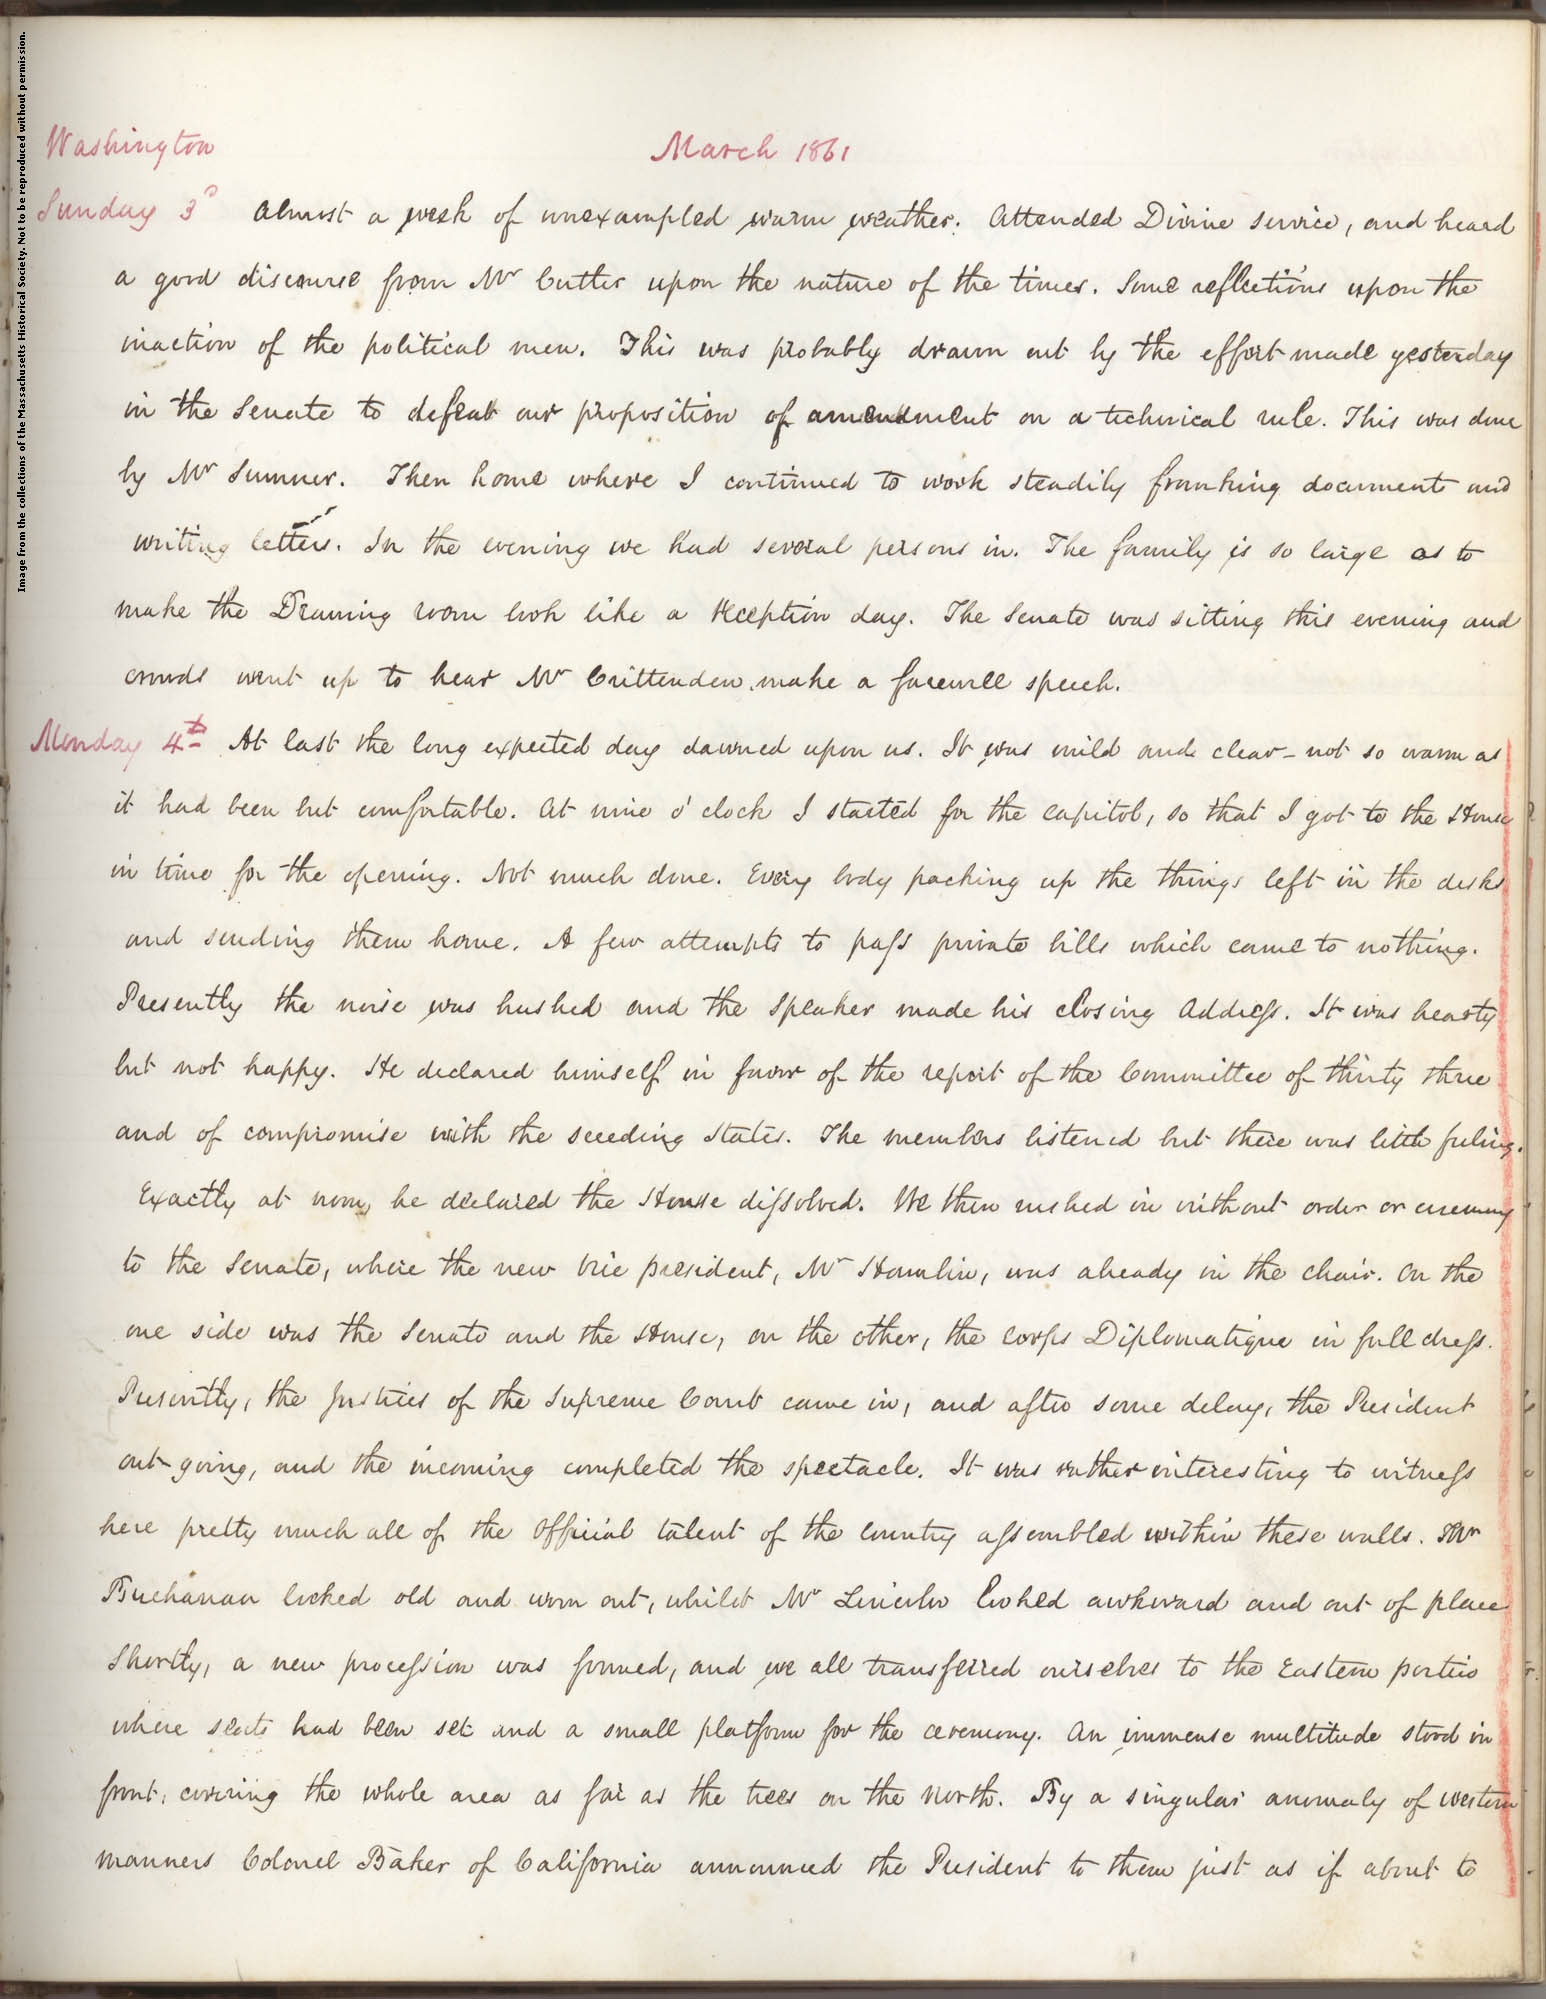 Image from the collections of the Massachusetts Historical Society. Not to be reproduced without permission.
Washington
March 1861
Sunday 3d Almost a week of unexampled warm weather. Attended Divine Service, and heard
a good discourse from Mr Cutler upon the nature of the times. Some reflections upon the
inaction of the political men. This was probably drawn out by the effort made yesterday
in the Senate to defeat our proposition of amendment on a technical rule. This was done
by Mr Sumner. Then home where I continued to work steadily franking documents and
writing letters. In the evening we had several persons in. The family is so large as to
make the Drawing room look like a reception day. The Senate was sitting this evening and
crowds went up to hear Mr Crittenden make a farewell speech.
Monday 4th At last the long expected day dawned upon us. It was mild and clear – not so warm as
it had been but comfortable. At nine o'clock I started for the Capitol, so that I got to the House
in time for the opening. Not much done. Every body packing up the things left in the desks
and sending them home. A few attempts to pass private bills which came to nothing.
Presently the noise was hushed and the Speaker made his closing Address. It was hearty
but not happy. He declared himself in favor of the report of the Committee of thirty three
and of compromise with the seceding States. The members listened but there was little feeling.
Exactly at noon, he declared the House dissolved. We then rushed in without order or ceremony
to the Senate, where the new Vice president, Mr Hamlin, was already in the chair. On the
one side was the Senate and the House, on the other, the Corps Diplomatique in full dress.
Presently, the Justices of the Supreme Court came in, and after some delay, the President
out-going, and the incoming completed the spectacle. It was rather interesting to witness
here pretty much all of the Official talent of the Country assembled within these walls. Mr
Buchanan looked old and worn out, whilst Mr Lincoln looked awkward and out of place
Shortly, a new procession was formed, and we all transferred ourselves to the Eastern portico
where seats had been set and a small platform for the ceremony. An immense multitude stood in
front, covering the whole area as far as the trees on the North. By a singular anomaly of western
manners Colonel Baker of California announced the President to them just as if about to